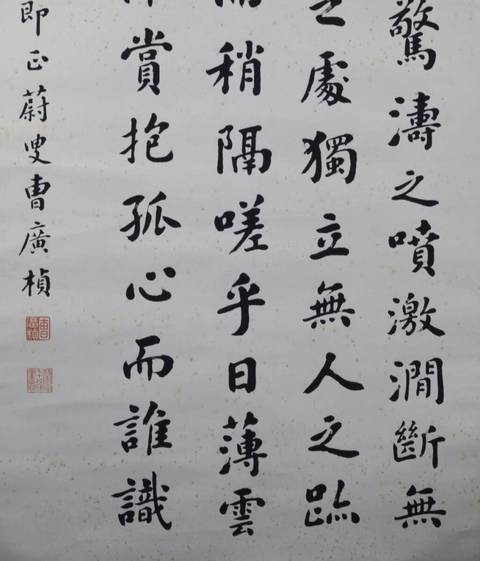 驚濤之噴激澗斷無
之處獨立無人之跡
而稍隔嗟乎日薄雲
賞抱孤心而誰識
即正蔚叟曹廣楨